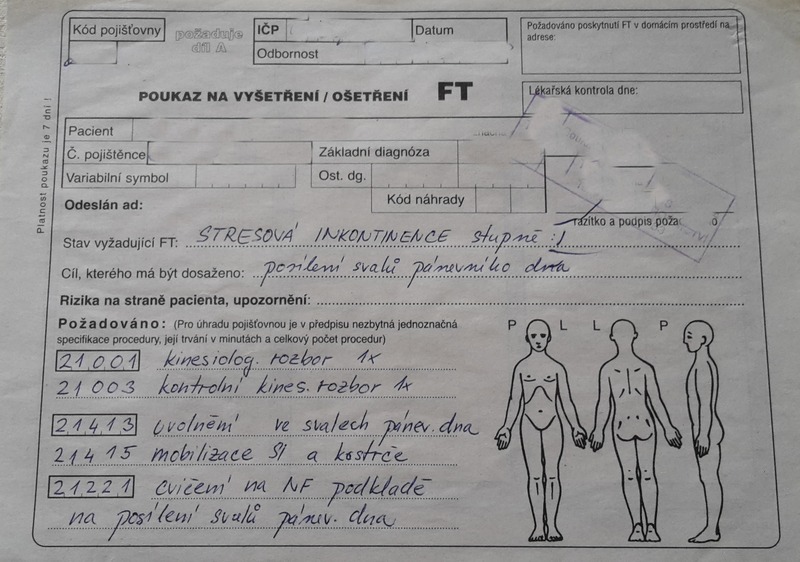 Kód pojišťovny
požaduje
díl A
IČP
Datum
Odbornost
Požadováno poskytnutí FT v domácím prostředí na
adrese:
POUKAZ NA VYŠETŘENÍ / OŠETŘENÍ FT
Lékařská kontrola dne:
Platnost poukazu je 7 dní !
Pacient
Č. pojištěnce
Základní diagnóza
Variabilní symbol
Ost. dg.
Kód náhrady
Odeslán ad:
razítko a podpis poža
Stav vyžadující FT: STRESOVÁ INKONTINENCE stupně :1
Cíl, kterého má být dosaženo: posílení svalů pánevního dna
Rizika na straně pacienta, upozornění:
Požadováno: (Pro úhradu pojišťovnou je v předpisu nezbytná jednoznačná
specifikace procedury, její trvání v minutách a celkový počet procedur)
P L L P
21001 kinesiolog. rozbor 1x
21003 kontrolní kines. rozbor 1x
21413 uvolnění ve svalech pánev. dna
21415 mobilizace SI a kostrče
21221 cvičení na NF podkladě
na posílení svalů pánev. dna